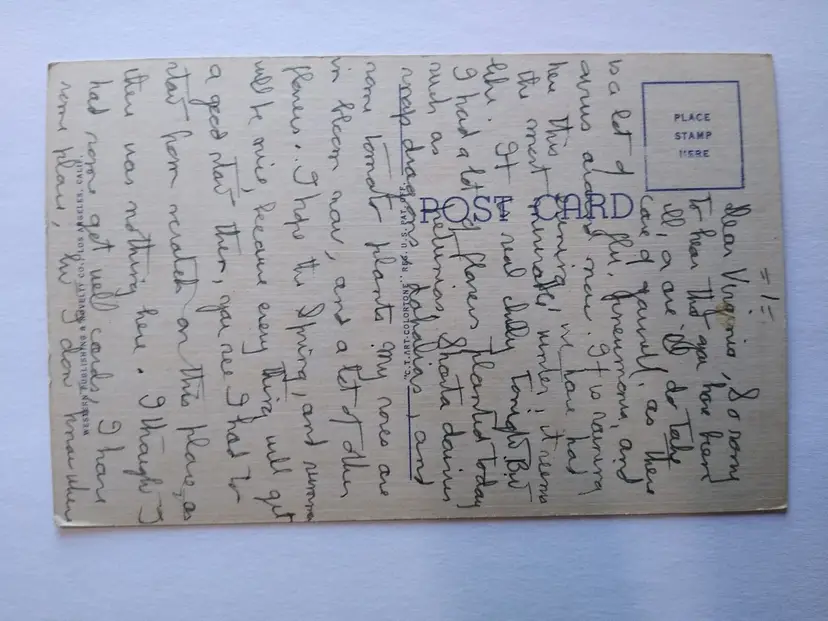 =1=
Dear Virginia, So sorry
to hear that you have been
ill, or are ill do take
care of yourself, as there
is a lot of flu, pneumonia, and
around now. It is raining
here this evening, we have had
the most winter; it seems
like. It is real chilly tonight. But
I had a lot of flowers planted today
such as petunias, Shasta daisies
snap dragons, dahlias, and
some tomato plants. My roses are
in bloom now, and a lot of other
flowers.. I hope the Spring, and summer
will be nice, because every thing will get
a good start then, you see I had to
start from scratch on this place, as
there was nothing here. I thought I
had some get well cards, I have
some place, but I don know where
PLACE
STAMP
HERE
POST CARD
"C.T. ART-COLORTONE" REG. U.S. PAT. OFF.
WESTERN PUBLISHING & NOVELTY CO., LOS ANGELES, CALIF.